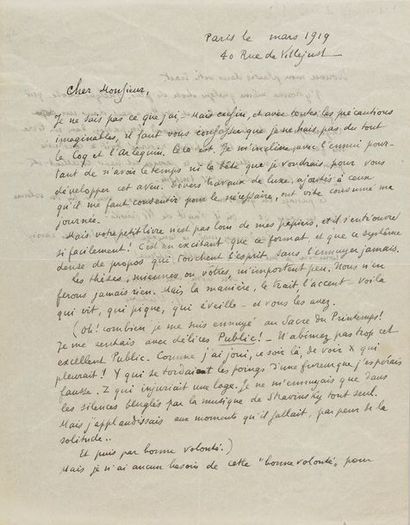 Paris le mars 1919
40 Rue de Villejust
Cher Monsieur,
Je ne sais pas ce que j'ai. Mais enfin, et avec toutes les précautions
imaginables, il faut vous confesser que je ne hais pas du tout
le Coq et l'Arlequin. Cela est. Je m'incline avec l'ennui pour-
tant de n'avoir le temps ni la tête que je voudrais pour vous
développer cet aveu. Divers travaux de luxe, ajoutés à ceux
qu'il me faut consentir pour le nécessaire, ont vite consumé ma
journée.
Mais votre petit livre n'est pas loin de mes papiers, et s'entr'ouvre
si facilement! C'est un excitant que ce format et que ce système
dense de propos qui touchent l'esprit, sans l'ennuyer jamais.
Les thèses, miennes ou vôtres, m'importent peu. Nous n'en
ferons jamais rien. Mais la manière, le trait l'accent. Voilà
qui vit, qui pique, qui éveille - et vous les avez.
(Oh! combien je me suis ennuyé au Sacre du Printemps!
Je me sentais avec délices Public! - N'abîmez pas trop cet
excellent Public. Comme j'ai joui, ce soir là, de voir X qui
pleurait! Y qui se tordait les poings d'une fureur que j'espérais
fausse. Z qui injuriait une loge. Je ne m'ennuyais que dans
les silences beuglés par la musique de Stravinsky tout seul.
Mais j'applaudissais aux moments qu'il fallait, par peur de la
solitude..
Et puis par bonne volonté.)
Mais je n'ai aucun besoin de cette "bonne volonté, pour